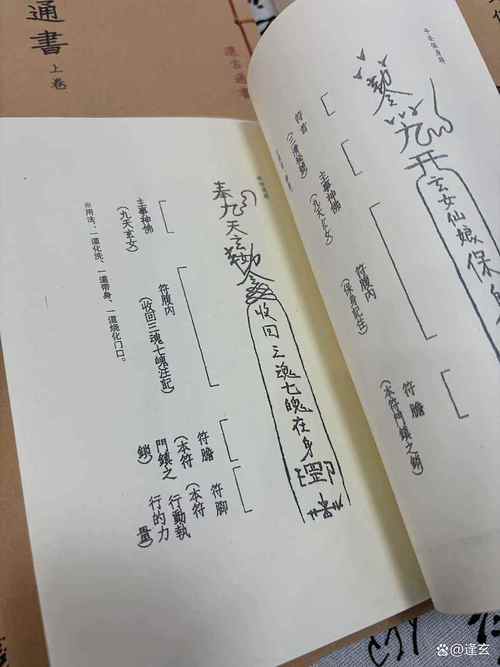 通書
上卷
奉九天玄勅令
收回三魂七魄在身
主事神佛
(九天玄女)
符腹內
(收回三魂七魄注記)
符膽
(本符門鎮之鎖)
符腳
(本符行動執行的力量)
※用法:一道化洗、一道帶身、一道燒化門口。
勅令
九天
玄女仙娘保身
符首
(三清
主事神佛
(九天玄女)
符腹內
(保身記注)
符膽
(本符門鎮之鎖)
逢玄